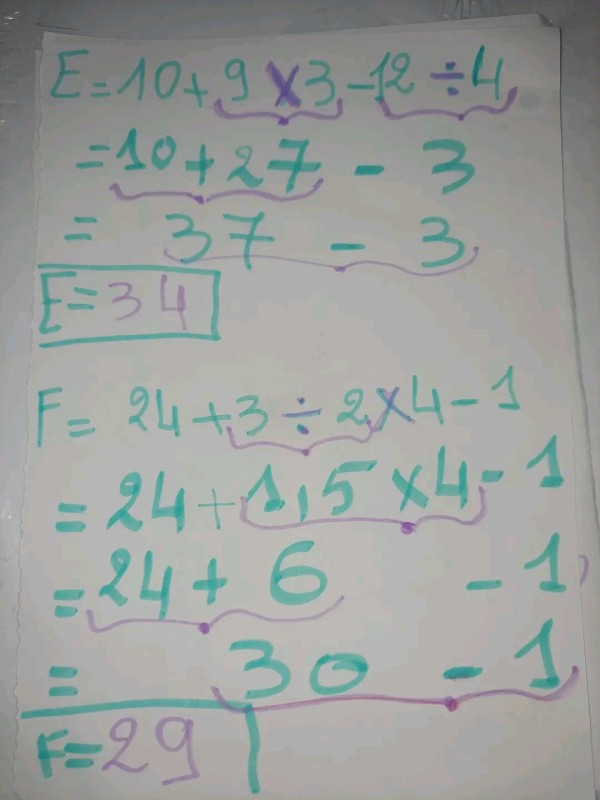 E = 10 + 9 × 3 - 12 ÷ 4
= 10 + 27 - 3
= 37 - 3
E = 34
F = 24 + 3 ÷ 2 × 4 - 1
= 24 + 1,5 × 4 - 1
= 24 + 6 - 1
= 30 - 1
F = 29